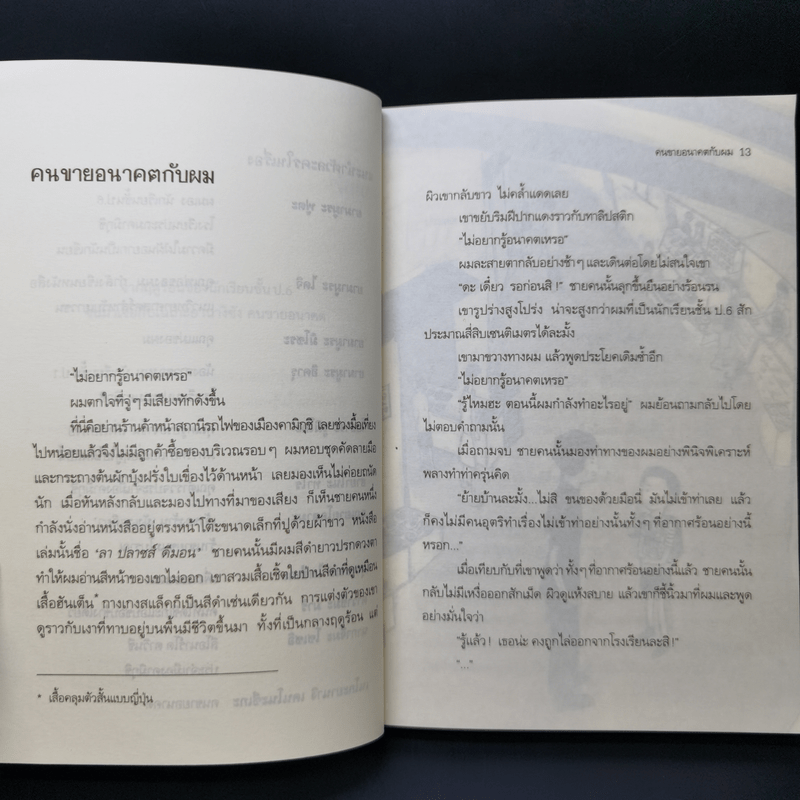 คนขายอนาคตกับผม
“ไม่อยากรู้อนาคตเหรอ”
ผมตกใจที่จู่ๆ มีเสียงทักดังขึ้น
ที่นี่คือย่านร้านค้าหน้าสถานีรถไฟของเมืองคามิกุชิ เลยช่วงมื้อเที่ยง
ไปหน่อยแล้วจึงไม่มีลูกค้าซื้อของบริเวณรอบๆ ผมหอบชุดคัดลายมือ
และกระถางต้นผักบุ้งฝรั่งใบเขื่องไว้ด้านหน้า เลยมองเห็นไม่ค่อยถนัด
นัก เมื่อหันหลังกลับและมองไปทางที่มาของเสียง ก็เห็นชายคนหนึ่ง
กำลังนั่งอ่านหนังสืออยู่ตรงหน้าโต๊ะขนาดเล็กที่ปูด้วยผ้าขาว หนังสือ
เล่มนั้นชื่อ ‘ลา ปลาซส์ ดีมอน’ ชายคนนั้นมีผมสีดำยาวปรกดวงตา
ทำให้ผมอ่านสีหน้าของเขาไม่ออก เขาสวมเสื้อเชิ้ตใยป่านสีดำที่ดูเหมือน
เสื้อฮันเต็น* กางเกงสแล็คก็เป็นสีดำเช่นเดียวกัน การแต่งตัวของเขา
ดูราวกับเงาที่ทาบอยู่บนพื้นมีชีวิตขึ้นมา ทั้งที่เป็นกลางฤดูร้อน แต่
* เสื้อคลุมตัวสั้นแบบญี่ปุ่น
คนขายอนาคตกับผม 13
ผิวเขากลับขาว ไม่คล้ำแดดเลย
เขาขยับริมฝีปากแดงราวกับทาลิปสติก
“ไม่อยากรู้อนาคตเหรอ”
ผมละสายตากลับอย่างช้าๆ และเดินต่อโดยไม่สนใจเขา
“ตะ เดี๋ยว รอก่อนสิ!” ชายคนนั้นลุกขึ้นยืนอย่างร้อนรน
เขารูปร่างสูงโปร่ง น่าจะสูงกว่าผมที่เป็นนักเรียนชั้น ป.6 สัก
ประมาณสี่สิบเซนติเมตรได้ละมั้ง
เขามาขวางทางผม แล้วพูดประโยคเดิมซ้ำอีก
“ไม่อยากรู้อนาคตเหรอ”
“รู้ไหมฮะ ตอนนี้ผมกำลังทำอะไรอยู่” ผมย้อนถามกลับไปโดย
ไม่ตอบคำถามนั้น
เมื่อถามจบ ชายคนนั้นมองท่าทางของผมอย่างพินิจพิเคราะห์
พลางทำท่าครุ่นคิด
“ย้ายบ้านละมั้ง...ไม่สิ ขนของด้วยมือนี่ มันไม่เข้าท่าเลย แล้ว
ก็คงไม่มีคนอุตริทำเรื่องไม่เข้าท่าอย่างนั้นทั้งๆ ที่อากาศร้อนอย่างนี้
หรอก...”
เมื่อเทียบกับที่เขาพูดว่า ทั้งๆ ที่อากาศร้อนอย่างนี้แล้ว ชายคนนั้น
กลับไม่มีเหงื่อออกสักเม็ด ผิวดูแห้งสบาย แล้วเขาก็ชี้นิ้วมาที่ผมและพูด
อย่างมั่นใจว่า
“รู้แล้ว! เธอน่ะ คงถูกไล่ออกจากโรงเรียนละสิ!”
“...”